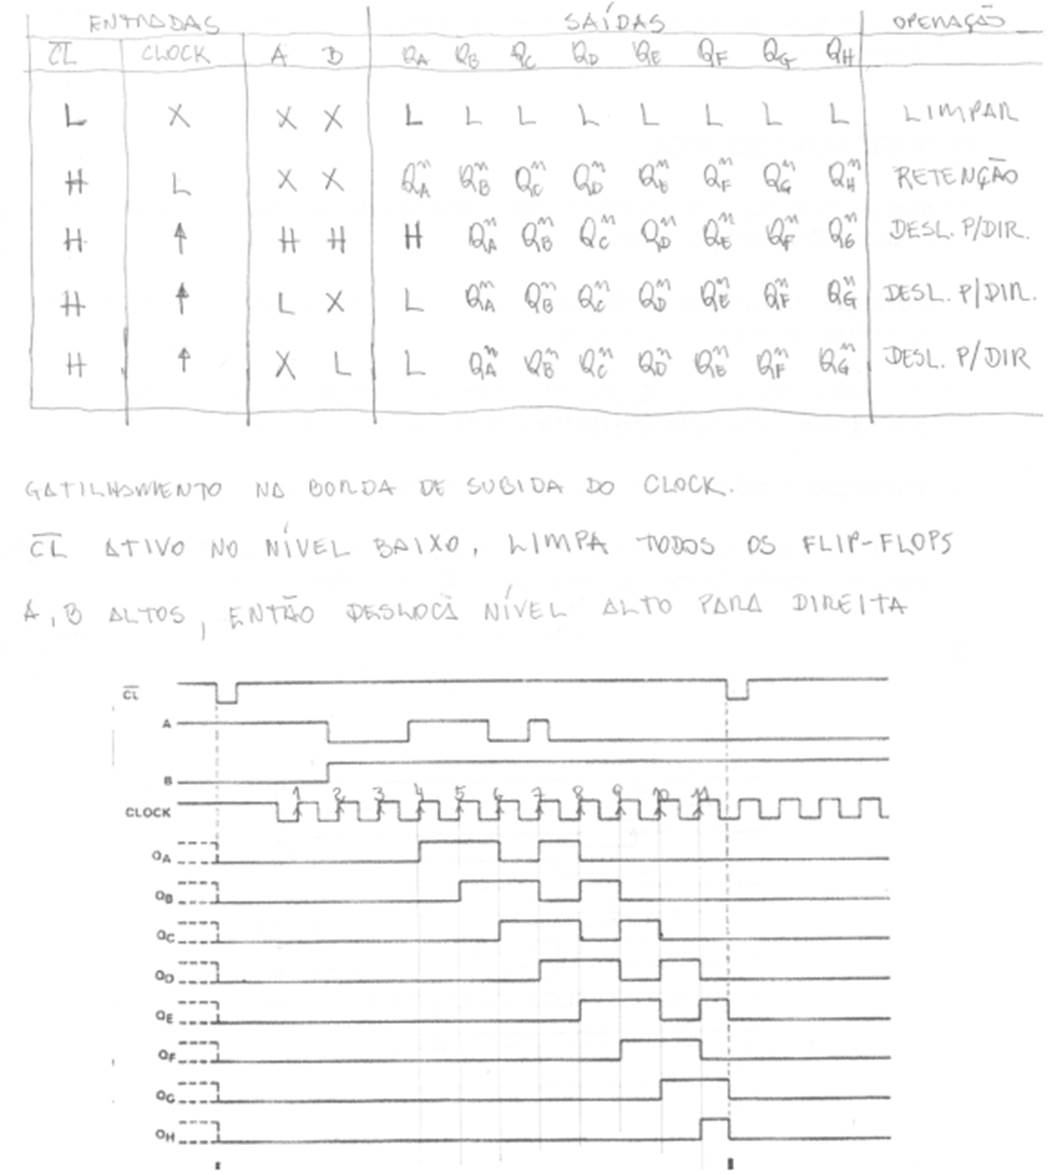 ENTRADAS SAÍDAS OPERAÇÃO
CL CLOCK A B QA QB QC QD QE QF QG QH
L X X X L L L L L L L L LIMPAR
H L X X QAⁿ QBⁿ QCⁿ QDⁿ QEⁿ QFⁿ QGⁿ QHⁿ RETENÇÃO
H ↑ H H H QAⁿ QBⁿ QCⁿ QDⁿ QEⁿ QFⁿ QGⁿ DESL. P/DIR.
H ↑ L X L QAⁿ QBⁿ QCⁿ QDⁿ QEⁿ QFⁿ QGⁿ DESL. P/DIR.
H ↑ X L L QAⁿ QBⁿ QCⁿ QDⁿ QEⁿ QFⁿ QGⁿ DESL. P/DIR
GATILHAMENTO NA BORDA DE SUBIDA DO CLOCK.
CL ATIVO NO NÍVEL BAIXO, LIMPA TODOS OS FLIP-FLOPS
A, B ALTOS, ENTÃO DESLOCA NÍVEL ALTO PARA DIREITA
CL
A
B
1 2 3 4 5 6 7 8 9 10 11
CLOCK
QA
QB
QC
QD
QE
QF
QG
QH